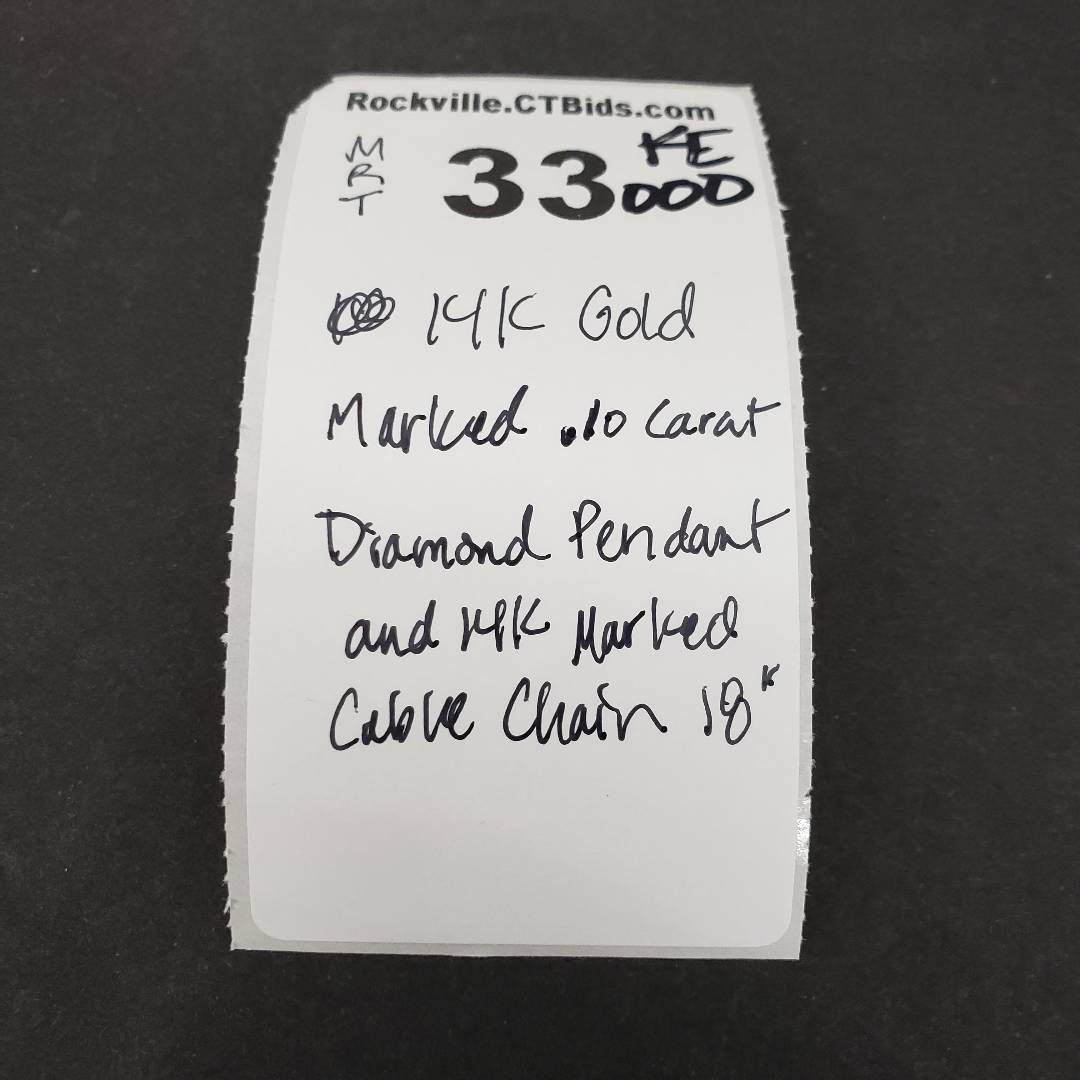 Rockville.CTBids.com
MRT 33 KE
000
14K Gold
Marked .10 Carat
Diamond Pendant
and 14K Marked
Cable Chain 18"